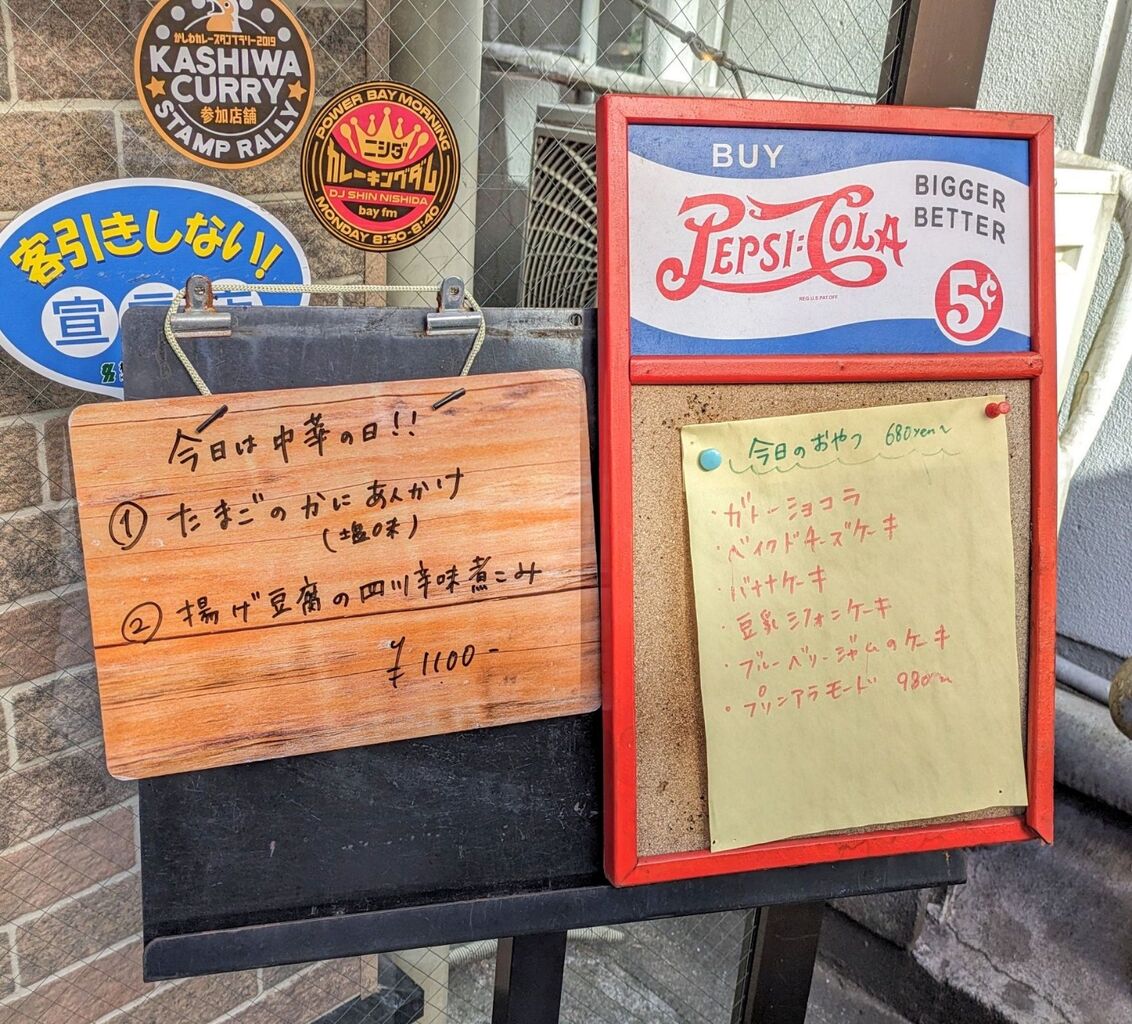 かしわカレースタンプラリー2019
KASHIWA
CURRY
参加店舗
STAMP RALLY
POWER BAY MORNING
ニシダ
カレーキングダム
DJ SHIN NISHIDA
bay fm
MONDAY 8:30-8:40
客引きしない!
宣
今日は中華の日!!
① たまごのかにあんかけ
(塩味)
② 揚げ豆腐の四川辛味煮こみ
¥1100-
BUY
PEPSI:COLA
BIGGER
BETTER
REG.U.S.PAT.OFF.
5¢
今日のおやつ 680yen~
・ガトーショコラ
・ベイクドチーズケーキ
・バナナケーキ
・豆乳シフォンケーキ
・ブルーベリージャムのケーキ
・プリンアラモード 980~